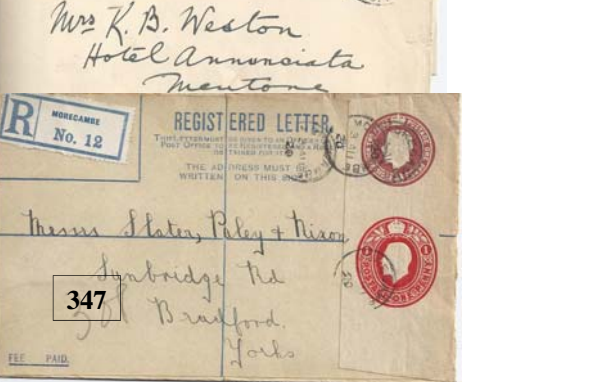 Mrs K. B. Weston
Hotel Annunciata
Mentone
R
MORECAMBE
No. 12
REGISTERED LETTER.
THIS LETTER MUST BE GIVEN TO AN OFFICER OF THE
POST OFFICE TO BE REGISTERED AND A RECEIPT
OBTAINED FOR IT
THE ADDRESS MUST BE
WRITTEN ON THIS SIDE
Messrs Slater, Paley & Nixon
Sunbridge Rd
347
Bradford.
Yorks
FEE PAID.
1 1
POSTAGE ONE PENNY